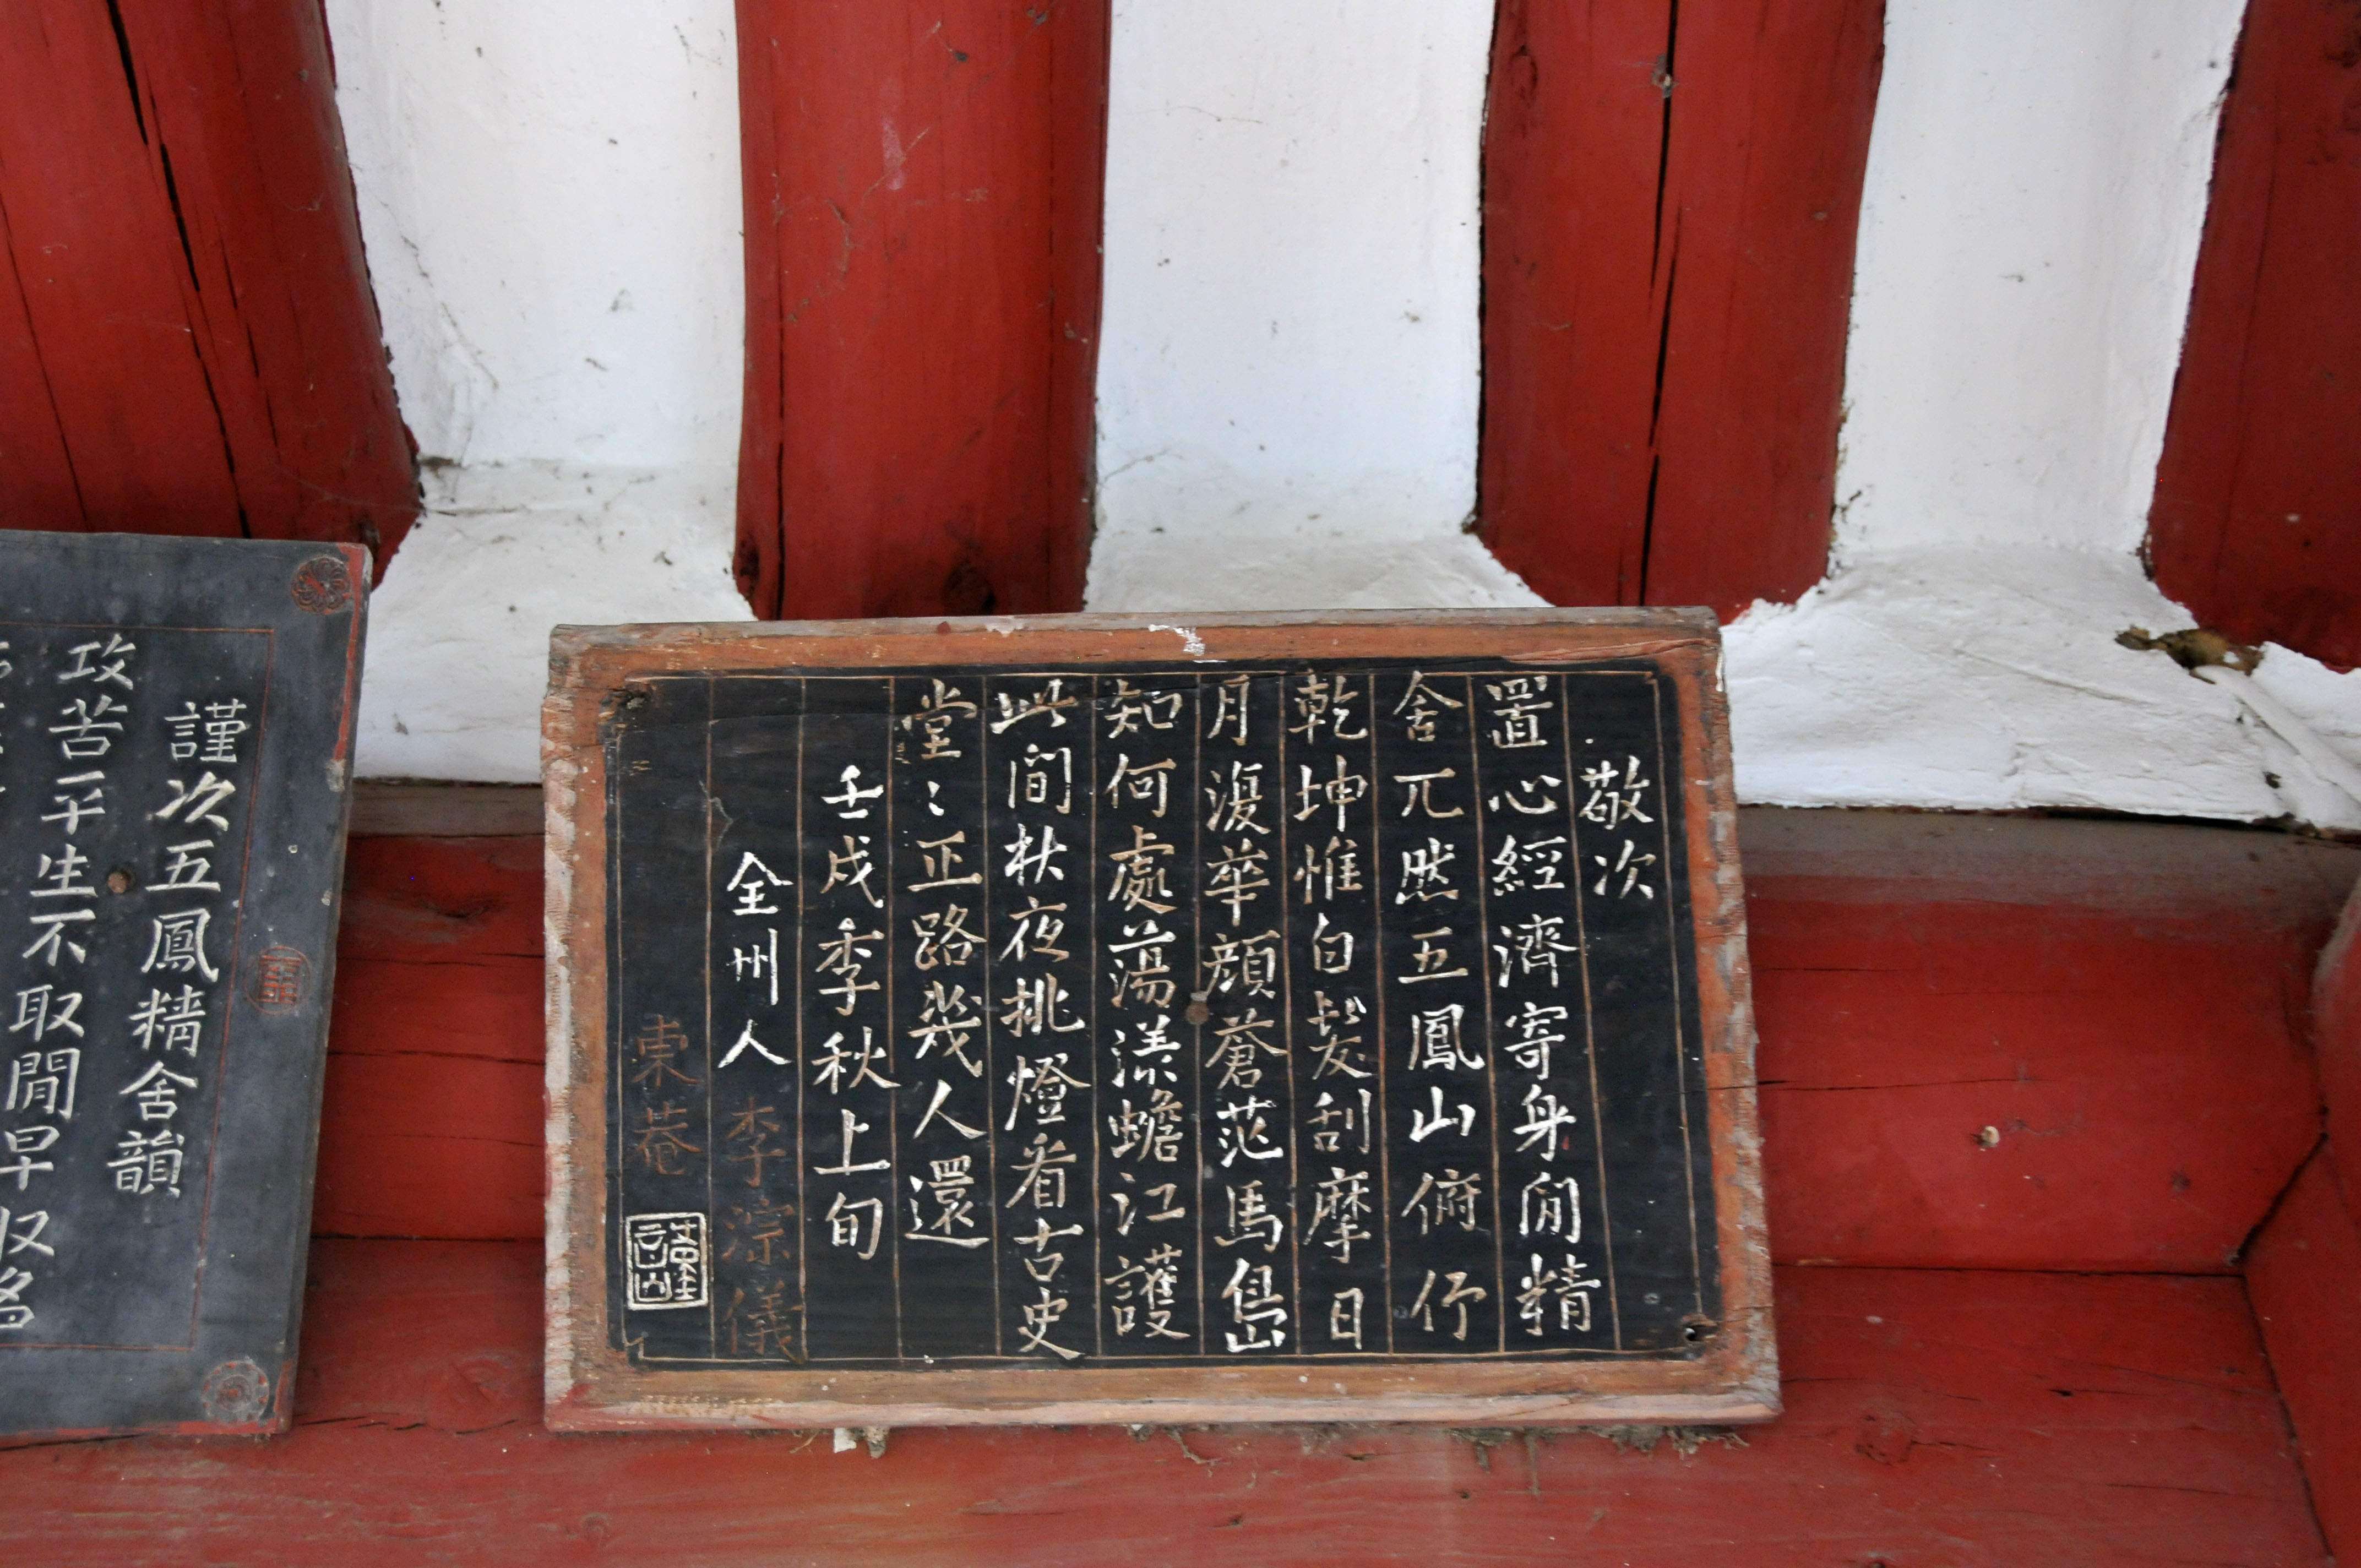 敬次
置心經濟寄身閒精
舍兀然五鳳山俯仰
乾坤惟白髮刮摩日
月復華顔蒼茫馬島
知何處蕩漾蟾江護
此間秋夜挑燈看古史
堂〻正路幾人還
壬戌季秋上旬
全州人 李淙儀
東菴
謹次五鳳精舍韻
攻苦平生不取閒早收名